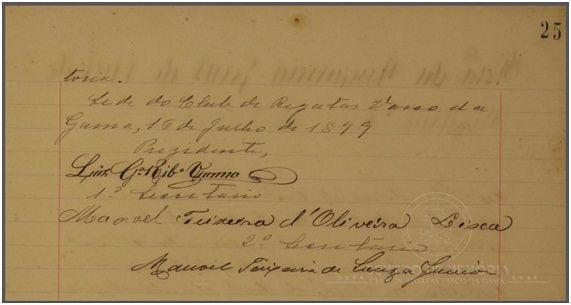 25
toria.
Sede do Club de Regatas Vasco da
Gama, 16 de Julho de 1899
Presidente,
Luiz
1º Secretario
Manoel Teixeira d'Oliveira Lisca
2º Secretario
Manoel Teixeira de Souza Junior